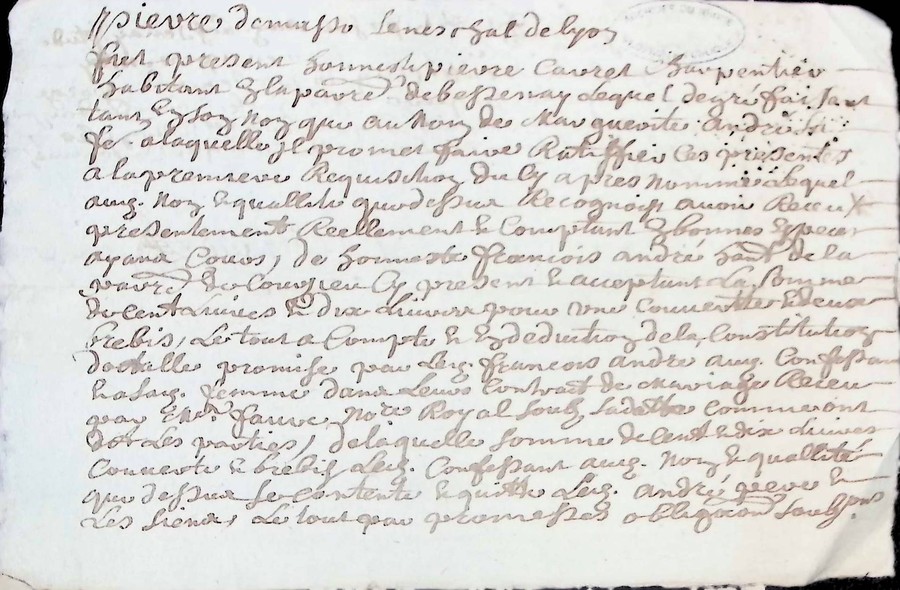 pierre demasso seneschal de lyon
fut present honneste pierre Cauret Charpentier
habitant en la parre de bessenay Lequel de gré faisant
tant en son nom que au nom de Marguerite andré sa
fe. a laquelle il promet faire Ratiffier ces presentes
a la premiere Requisition du Cy apres nommé Lequel
aud. nom & quallité que dessus Recognoist avoir Receu
presentement Reellement & Comptant en bonnes especes
ayans Cours, de honneste françois andré hant de la
parre de Courzieu Cy present & acceptant La Somme
de Cent Livres & dix Livres pour une Couverte & deux
brebis, Le tout a Compte & en deduction de la Constitution
dotalle promise par Led. françois andré aud. Confessant
& a sad. femme dans Leur Contract de Mariage Receu
par Me faure Nore Royal soubz sa datte comme ont
dit Les parties, de laquelle somme de Cent & dix Livres
Couverte & brebis Led. Confessant aud. nom & quallité
que dessus se contente & quitte Led. andré pere &
Les siens, Le tout par promesses obligaõns soubzmons